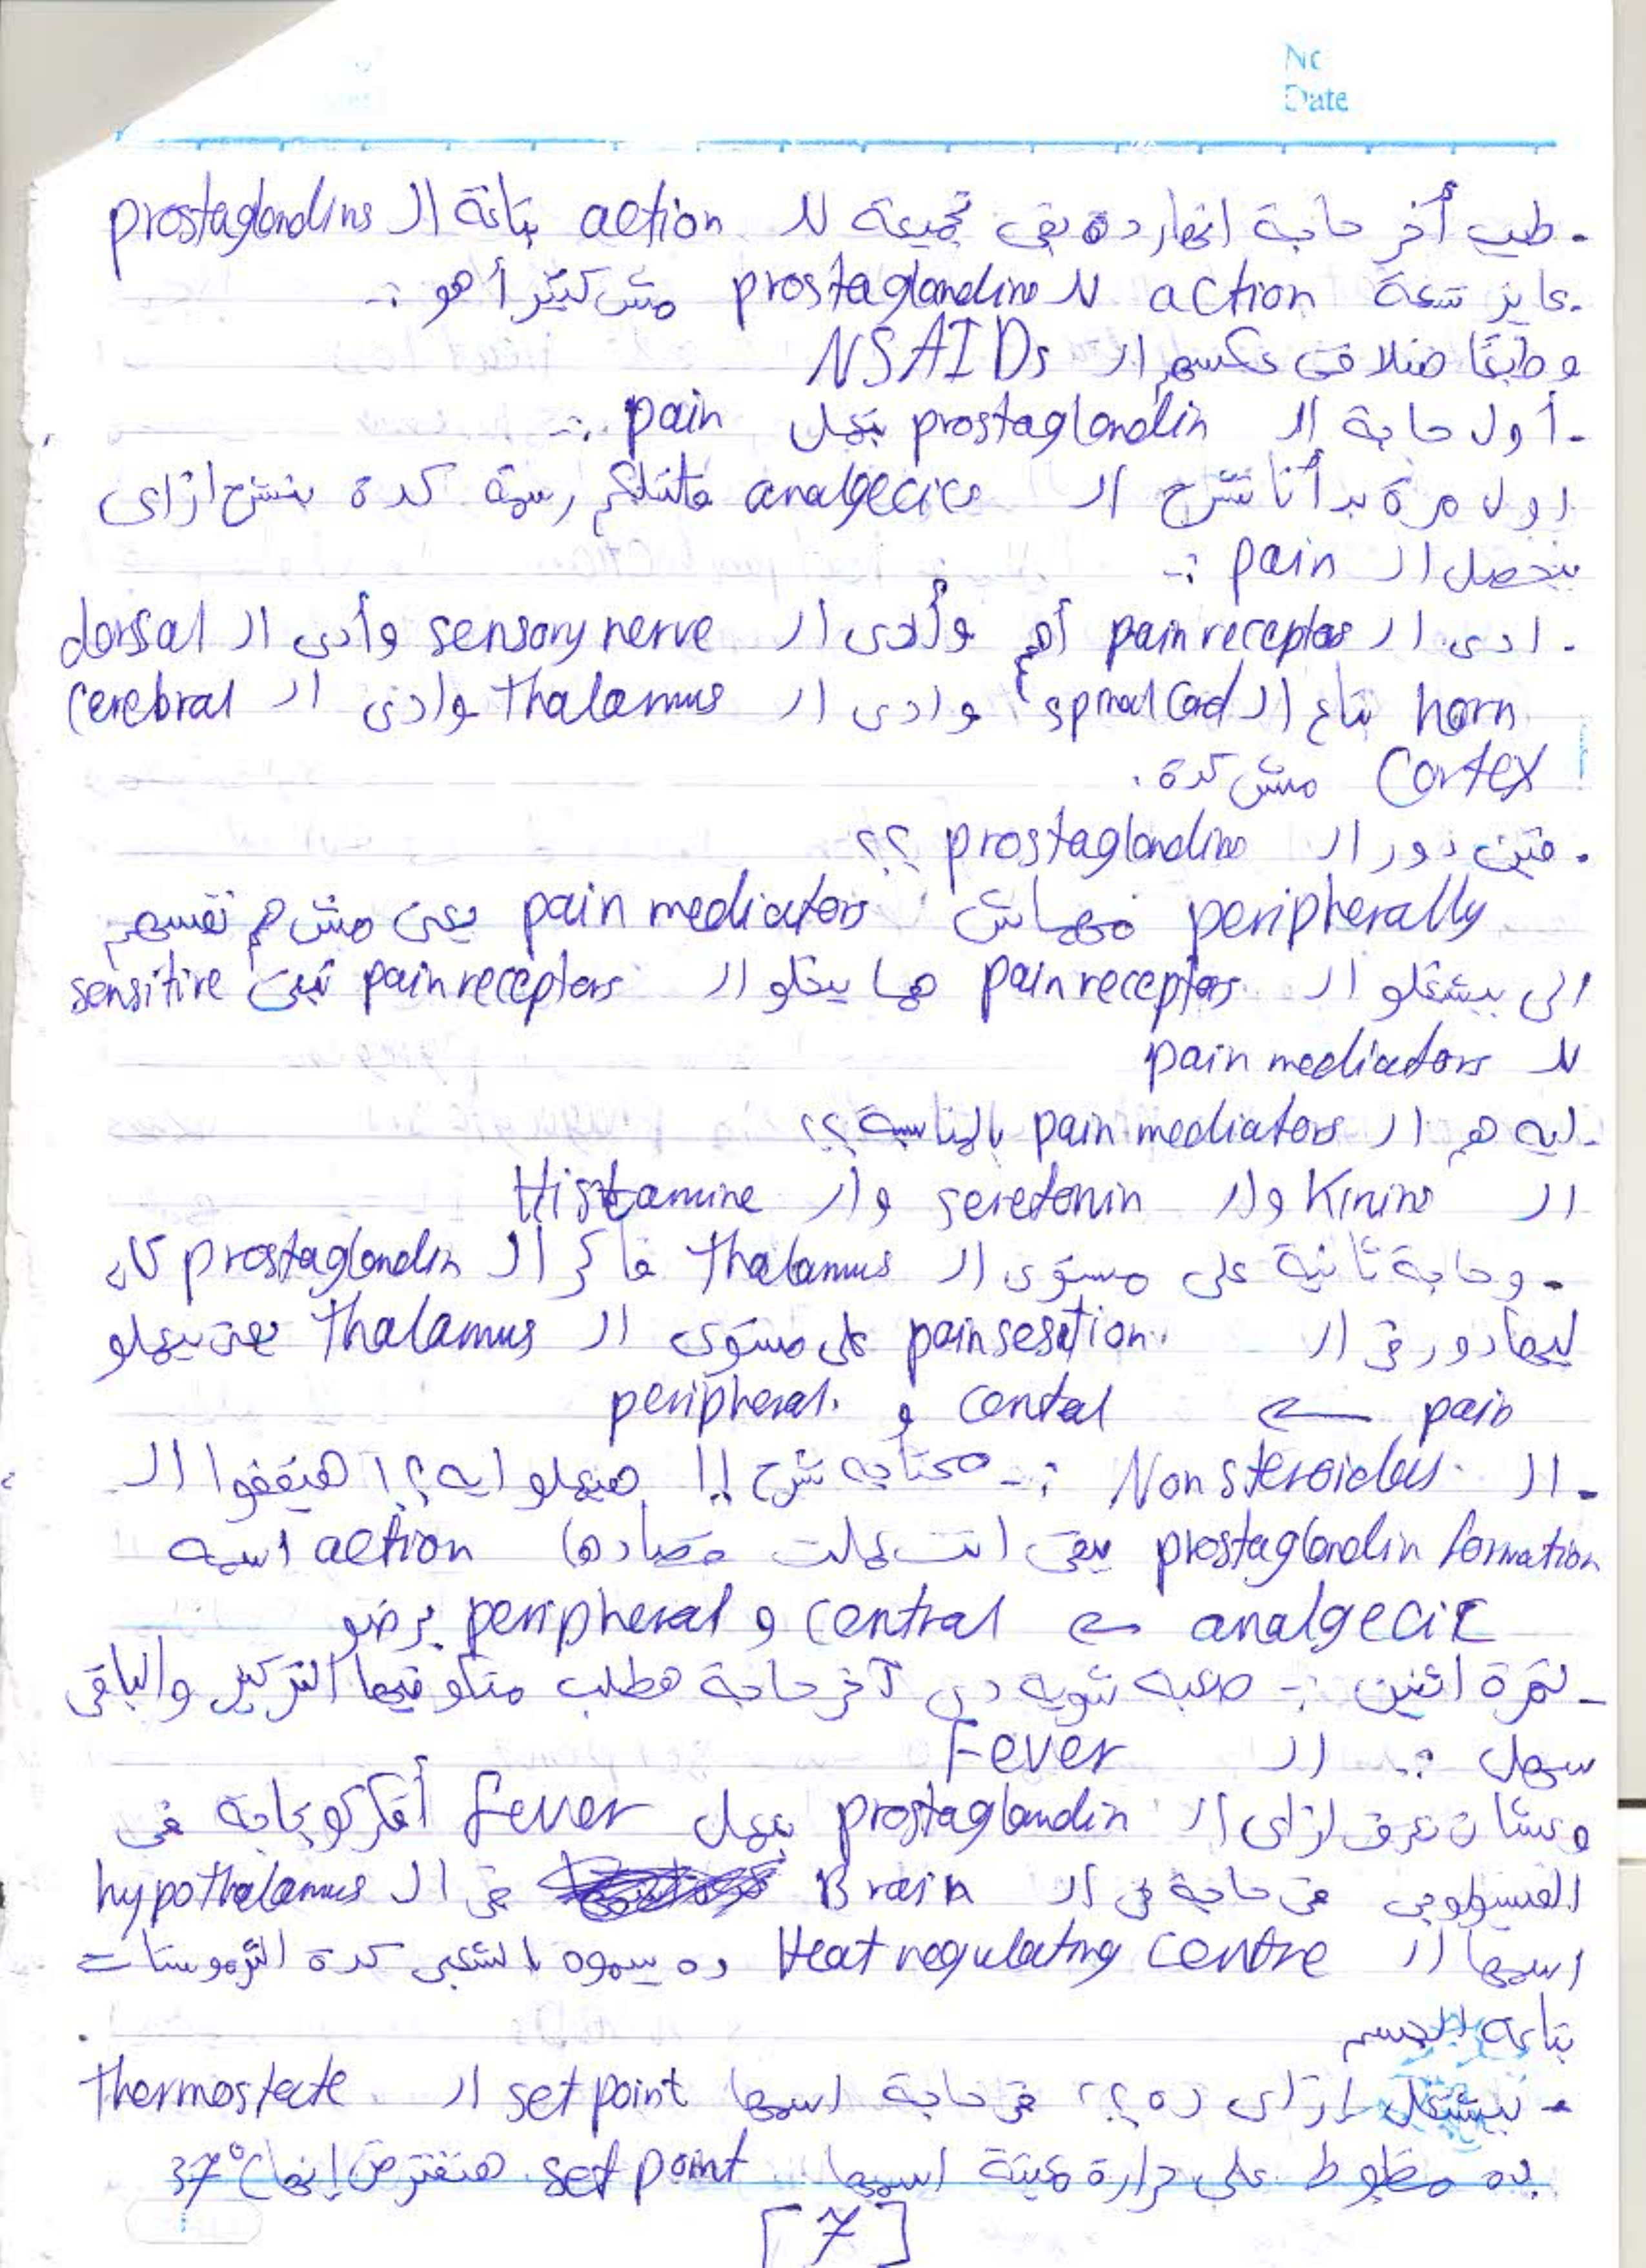 No
Date
- طيب أخر حاجة انهارده بقى تجميعة لل action بتاعة ال prostaglandins
- عايز تسعة action لل prostaglandins مش كتير أهو :-
و طبعًا ضلافى عكسهم ال NSAIDs
- أول حاجة ال prostaglandin بتعمل pain :-
- اول مرة بدأنا نشرح ال analgecics قلتلكم رسمة كدة بنشرح ازاى
بيحصل ال pain :-
- ادى ال pain receptors أهم وأدى ال sensory nerve وأدى ال dorsal
horn بتاع ال spinal Cord وادى ال thalamus وادى ال Cerebral
Cortex مش كدة .
- فين دور ال prostaglandins ؟؟
peripherally مهماش pain mediators يعنى مش هم نفسهم
الى بيشغلو ال pain receptors هما بيخلو ال pain receptors تبقى sensitive
لل pain mediators
- ايه هم ال pain mediators بالمناسبة ؟؟
ال Kinins وال seretonin وال Histamine
- وحاجة تانية على مستوى ال Thalamus فاكر ال prostaglandin كان
ليها دور فى ال pain sesation على مستوى ال Thalamus يعنى بيعملو
pain ← cental و peripheral.
- ال Nonsteroidals :- محتاجه شرح !! هيعملو ايه ؟! هيقفوا ال
prostaglandin formation يبقى انت عملت مضادها action اسمه
analgecic ← central و peripheral برضو
- نمرة اتنين :- صعبه شويه دى آخر حاجة هطلب منكو فيها التركيز والباقى
سهل :- ال Fever
وعشان نعرف ازاى ال prostaglandin بيعمل fever أفكركو بحاجة فى
الفسيولوجى فى حاجة فى ال Brain فى ال hypothalamus
اسمها ال Heat regulating centre ده بيسموه بالشعبى كدة الثرموستات
بتاعة الجسم
- بيشتغل ازاى ده ؟؟ فى حاجة اسمها set point ال thermostate
ده مظبوط على حرارة معينة اسمها set point هنفترض إنها 37°C
[7]